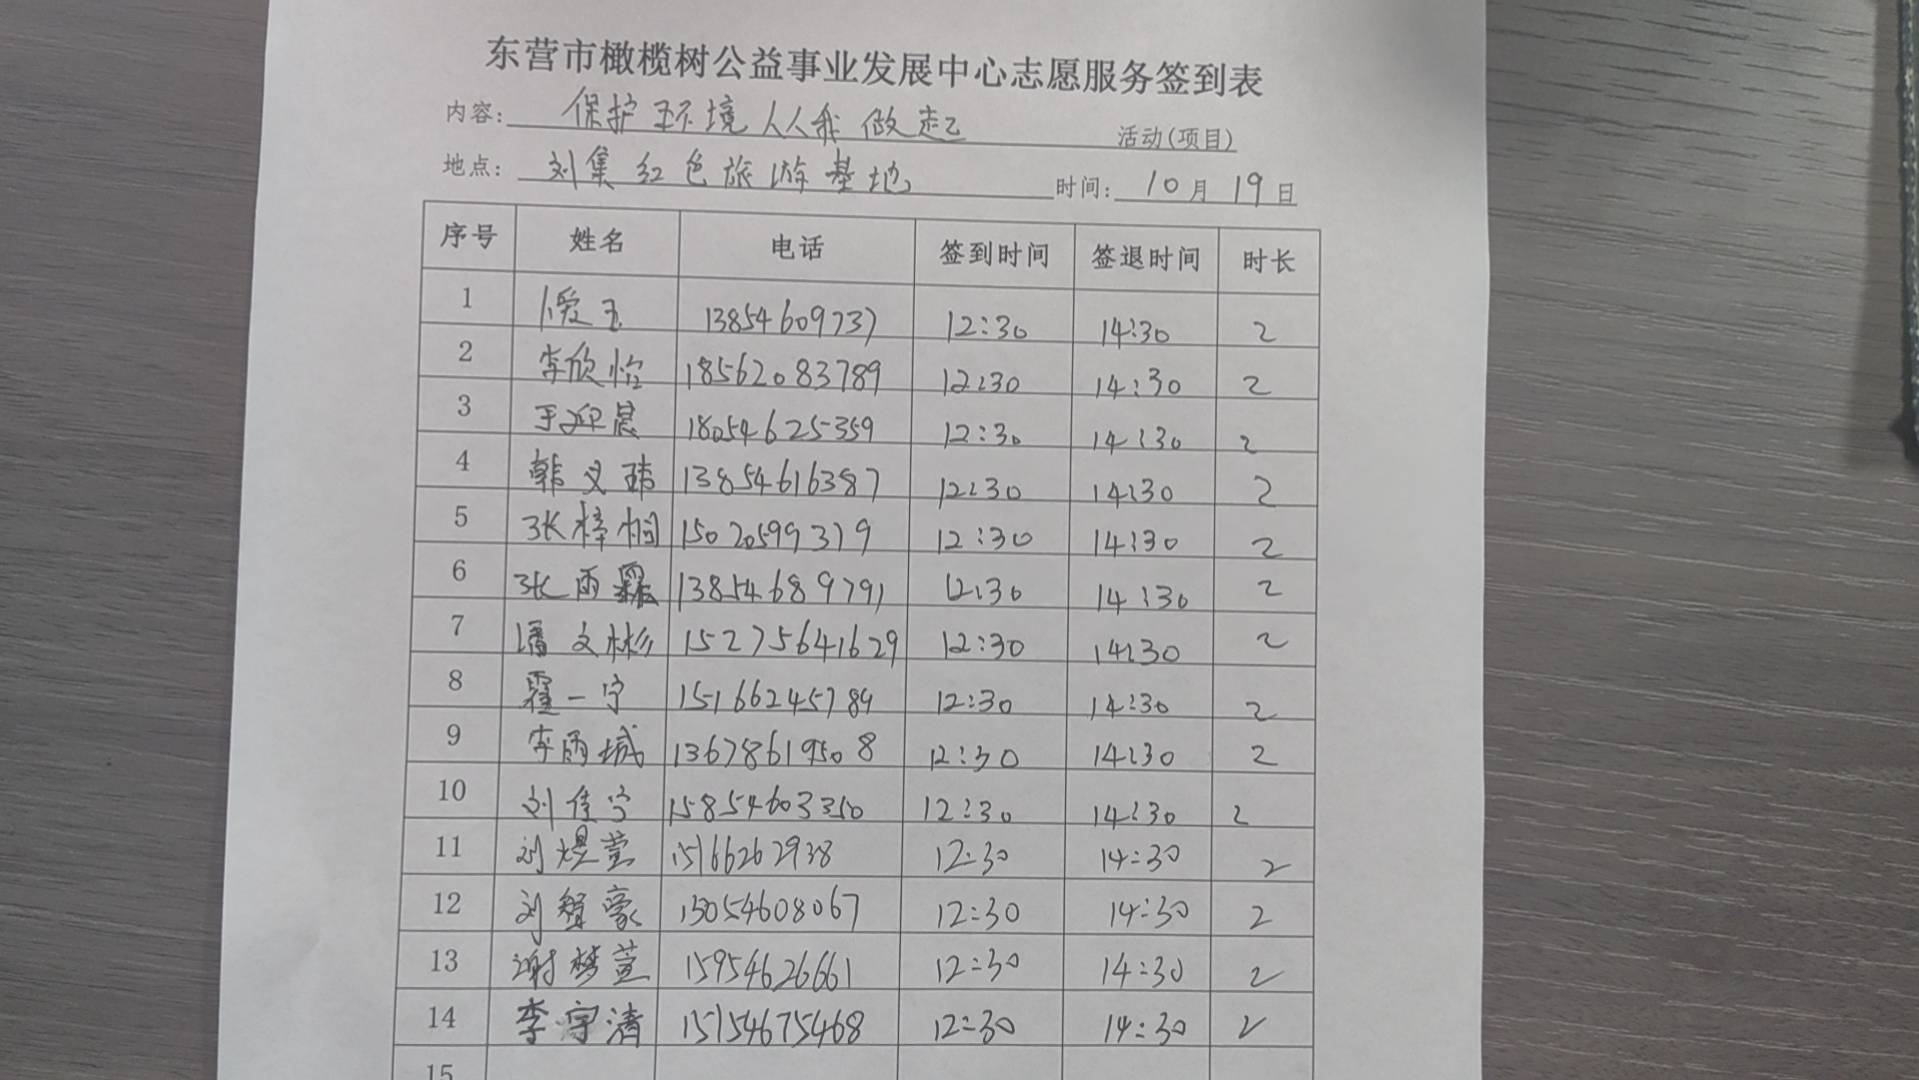 东营市橄榄树公益事业发展中心志愿服务签到表
内容: 保护环境人人我做起 活动(项目)
地点: 刘集红色旅游基地 时间: 10月19日
序号 姓名 电话 签到时间 签退时间 时长
1 爱玉 13854609737 12:30 14:30 2
2 李欣怡 18562083789 12:30 14:30 2
3 于迎晨 18054625359 12:30 14:30 2
4 韩义玮 13854616387 12:30 14:30 2
5 张梓桐 15020599379 12:30 14:30 2
6 张雨 13854689791 12:30 14:30 2
7 潘文彬 15275641629 12:30 14:30 2
8 霍一宁 15166245789 12:30 14:30 2
9 李雨城 13678619508 12:30 14:30 2
10 刘佳宁 15854603350 12:30 14:30 2
11 刘煜萱 15166262938 12:30 14:30 2
12 刘智豪 13054608067 12:30 14:30 2
13 谢梦萱 15954626661 12:30 14:30 2
14 李宇清 15154675468 12:30 14:30 2
15